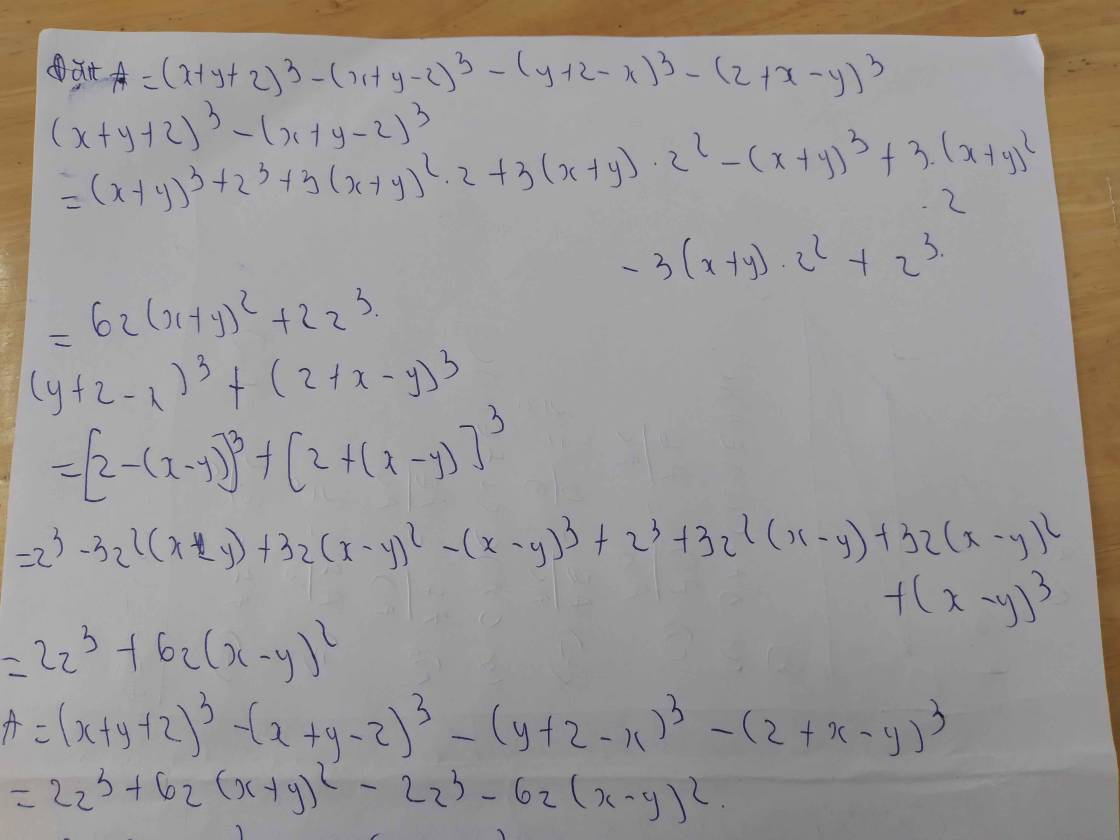 Đặt A = (x+y+z)³ - (x+y-z)³ - (y+z-x)³ - (z+x-y)³
(x+y+z)³ - (x+y-z)³
= (x+y)³ + z³ + 3(x+y)².z + 3(x+y).z² - (x+y)³ + 3.(x+y)²
.z
- 3(x+y).z² + z³.
= 6z(x+y)² + 2z³.
(y+z-x)³ + (z+x-y)³
= [z-(x-y)]³ + [z+(x-y)]³
= z³ - 3z²(x-y) + 3z(x-y)² - (x-y)³ + z³ + 3z²(x-y) + 3z(x-y)²
+(x-y)³
= 2z³ + 6z(x-y)²
A = (x+y+z)³ - (x+y-z)³ - (y+z-x)³ - (z+x-y)³
= 2z³ + 6z(x+y)² - 2z³ - 6z(x-y)².